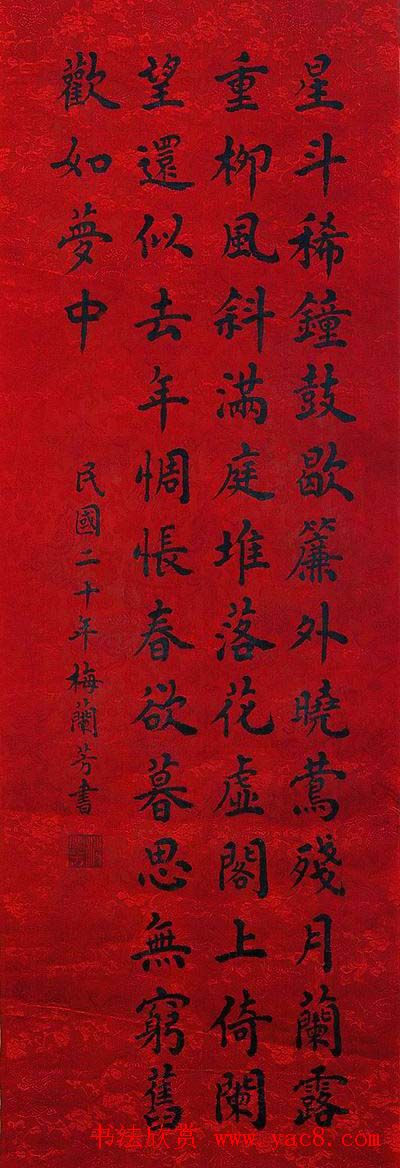 星斗稀鐘鼓歇簾外曉鶯殘月蘭露
重柳風斜滿庭堆落花虛閣上倚闌
望還似去年惆悵春欲暮思無窮舊
歡如夢中
民國二十年梅蘭芳書
书法欣赏 www.yac8.com